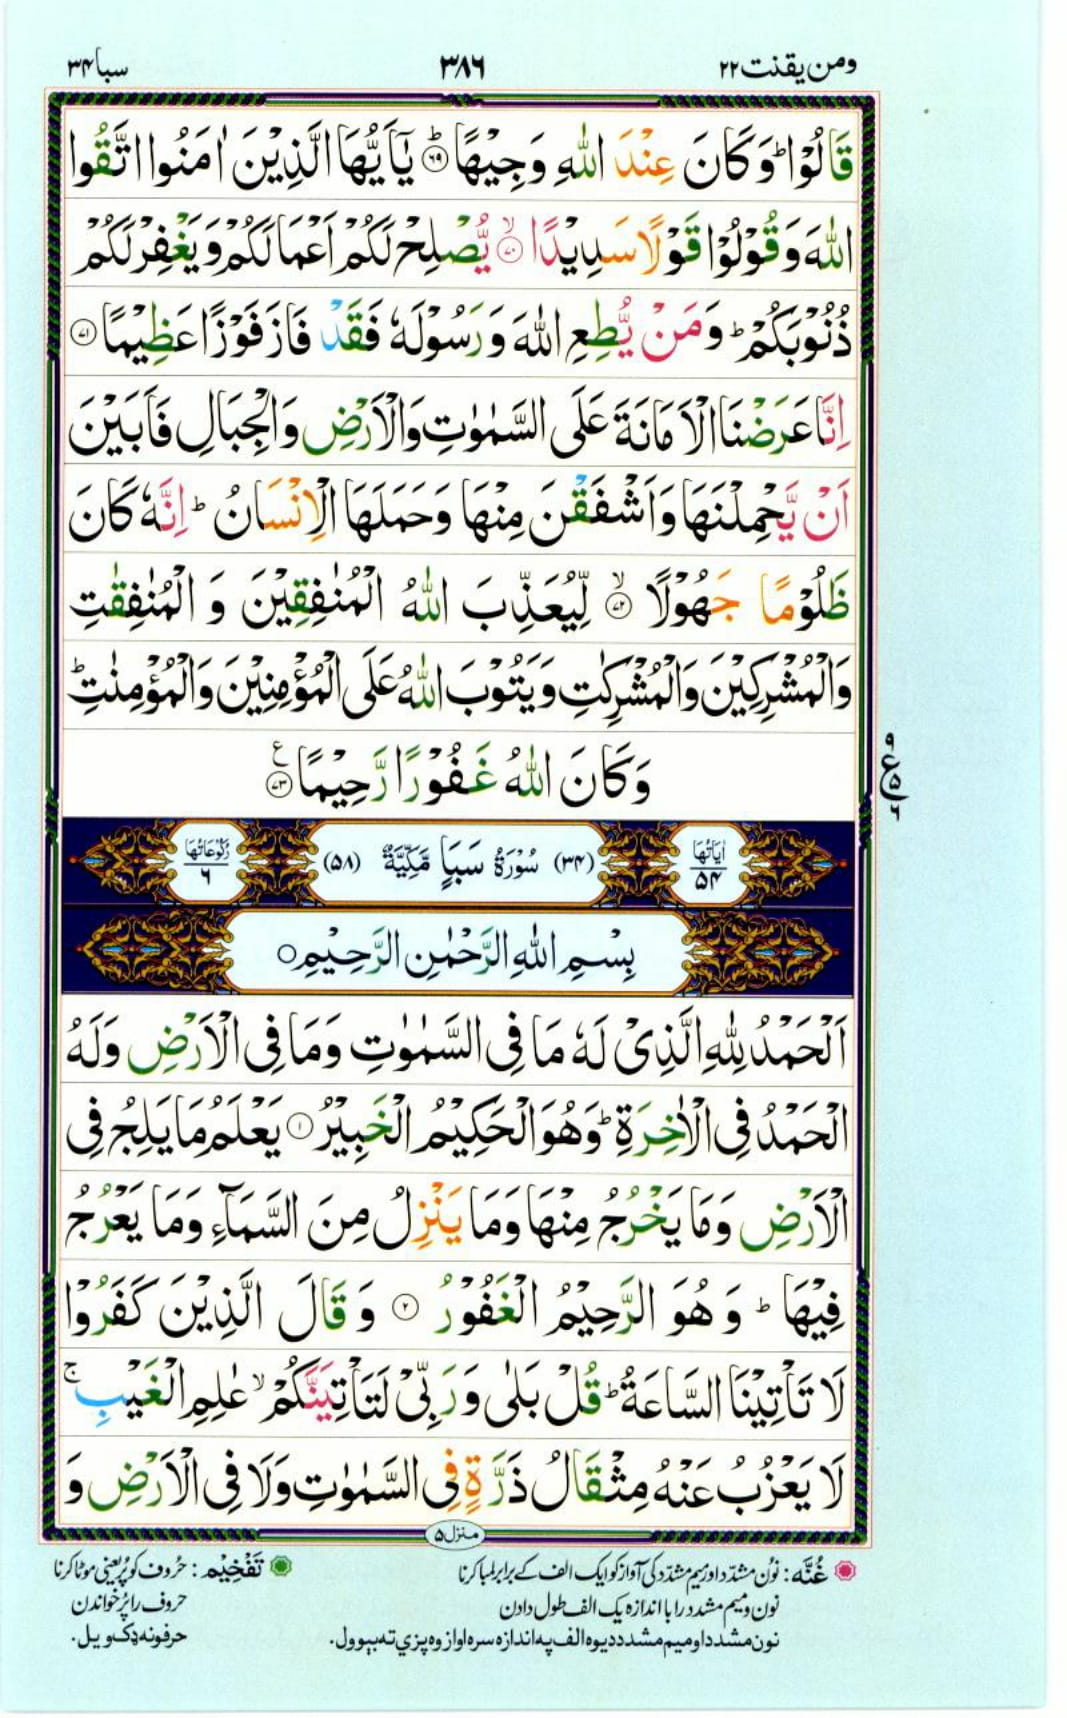 ومن يقنت ٢٢
٣٨٦
سبا ٣۴
قَالُوْا ؕ وَكَانَ عِنْدَ اللّٰهِ وَجِيْهًا ؕ ۶۹ يٰۤاَيُّهَا الَّذِيْنَ اٰمَنُوا اتَّقُوا
اللّٰهَ وَقُوْلُوْا قَوْلًا سَدِيْدًا ۙ ۷۰ يُّصْلِحْ لَكُمْ اَعْمَالَكُمْ وَيَغْفِرْ لَكُمْ
ذُنُوْبَكُمْ ؕ وَمَنْ يُّطِعِ اللّٰهَ وَ رَسُوْلَهٗ فَقَدْ فَازَ فَوْزًا عَظِيْمًا ۷۱
اِنَّا عَرَضْنَا الْاَمَانَةَ عَلَى السَّمٰوٰتِ وَالْاَرْضِ وَالْجِبَالِ فَاَبَيْنَ
اَنْ يَّحْمِلْنَهَا وَاَشْفَقْنَ مِنْهَا وَحَمَلَهَا الْاِنْسَانُ ؕ اِنَّهٗ كَانَ
ظَلُوْمًا جَهُوْلًا ۙ ۷۲ لِّيُعَذِّبَ اللّٰهُ الْمُنٰفِقِيْنَ وَ الْمُنٰفِقٰتِ
وَالْمُشْرِكِيْنَ وَالْمُشْرِكٰتِ وَيَتُوْبَ اللّٰهُ عَلَى الْمُؤْمِنِيْنَ وَالْمُؤْمِنٰتِ ؕ
وَكَانَ اللّٰهُ غَفُوْرًا رَّحِيْمًا ۷۳ ع
اٰيَاتُهَا ۵۴
(۳۴) سُوْرَةُ سَبَاٍ مَّكِّيَّةٌ (۵۸)
رُكُوْعَاتُهَا ۶
بِسْمِ اللّٰهِ الرَّحْمٰنِ الرَّحِيْمِ ○
اَلْحَمْدُ لِلّٰهِ الَّذِىْ لَهٗ مَا فِى السَّمٰوٰتِ وَمَا فِى الْاَرْضِ وَلَهُ
الْحَمْدُ فِى الْاٰخِرَةِ ؕ وَهُوَ الْحَكِيْمُ الْخَبِيْرُ ۱ يَعْلَمُ مَا يَلِجُ فِى
الْاَرْضِ وَمَا يَخْرُجُ مِنْهَا وَمَا يَنْزِلُ مِنَ السَّمَآءِ وَمَا يَعْرُجُ
فِيْهَا ؕ وَ هُوَ الرَّحِيْمُ الْغَفُوْرُ ۲ وَ قَالَ الَّذِيْنَ كَفَرُوْا
لَا تَاْتِيْنَا السَّاعَةُ ؕ قُلْ بَلٰى وَ رَبِّىْ لَتَاْتِيَنَّكُمْ ۙ عٰلِمِ الْغَيْبِ ۚ
لَا يَعْزُبُ عَنْهُ مِثْقَالُ ذَرَّةٍ فِى السَّمٰوٰتِ وَلَا فِى الْاَرْضِ وَ
منزل ۵
غُنَّه: نُون مشدّد اور مِیم مشدّد کی آواز کو ایک الف کے برابر لمبا کرنا
نون و میم مشدد را با اندازه یک الف طول دادن
نون مشدد او میم مشدد دیوه الف په اندازه سره اواز وه پزې ته بیوول.
تَفْخِیْم: حُروف کو پُر یعنی موٹا کرنا
حروف را پُر خواندن
حرفونه ډک ویل.